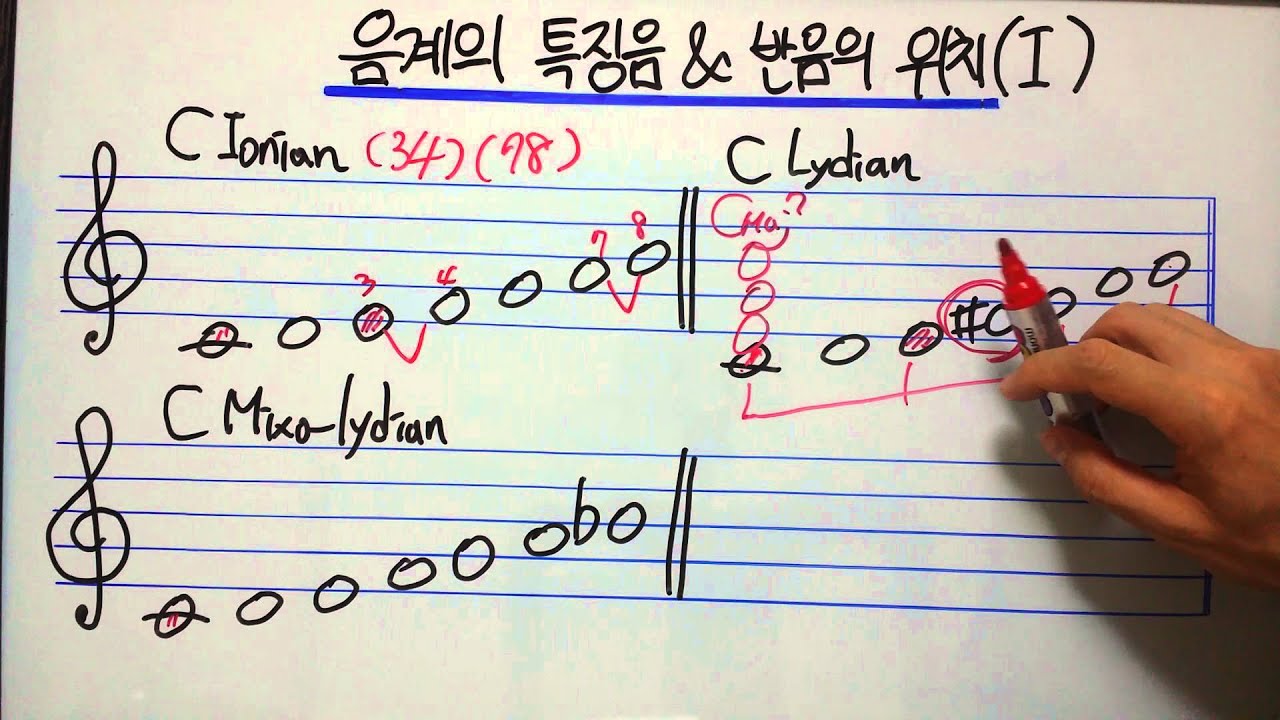 음계의 특징음 & 반음의 위치(I)
C Ionian (34)(78)
3 4 7 8
C Lydian
CMaj7
#
C Mixo-lydian
b